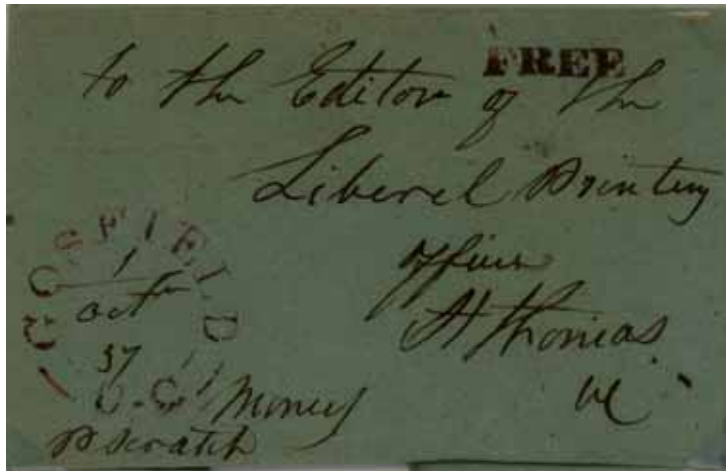 FREE
to the Editor of the
Liberel Printing
office
St Thomas
ROSFIELD
1
Oct
37
U.C.
Money